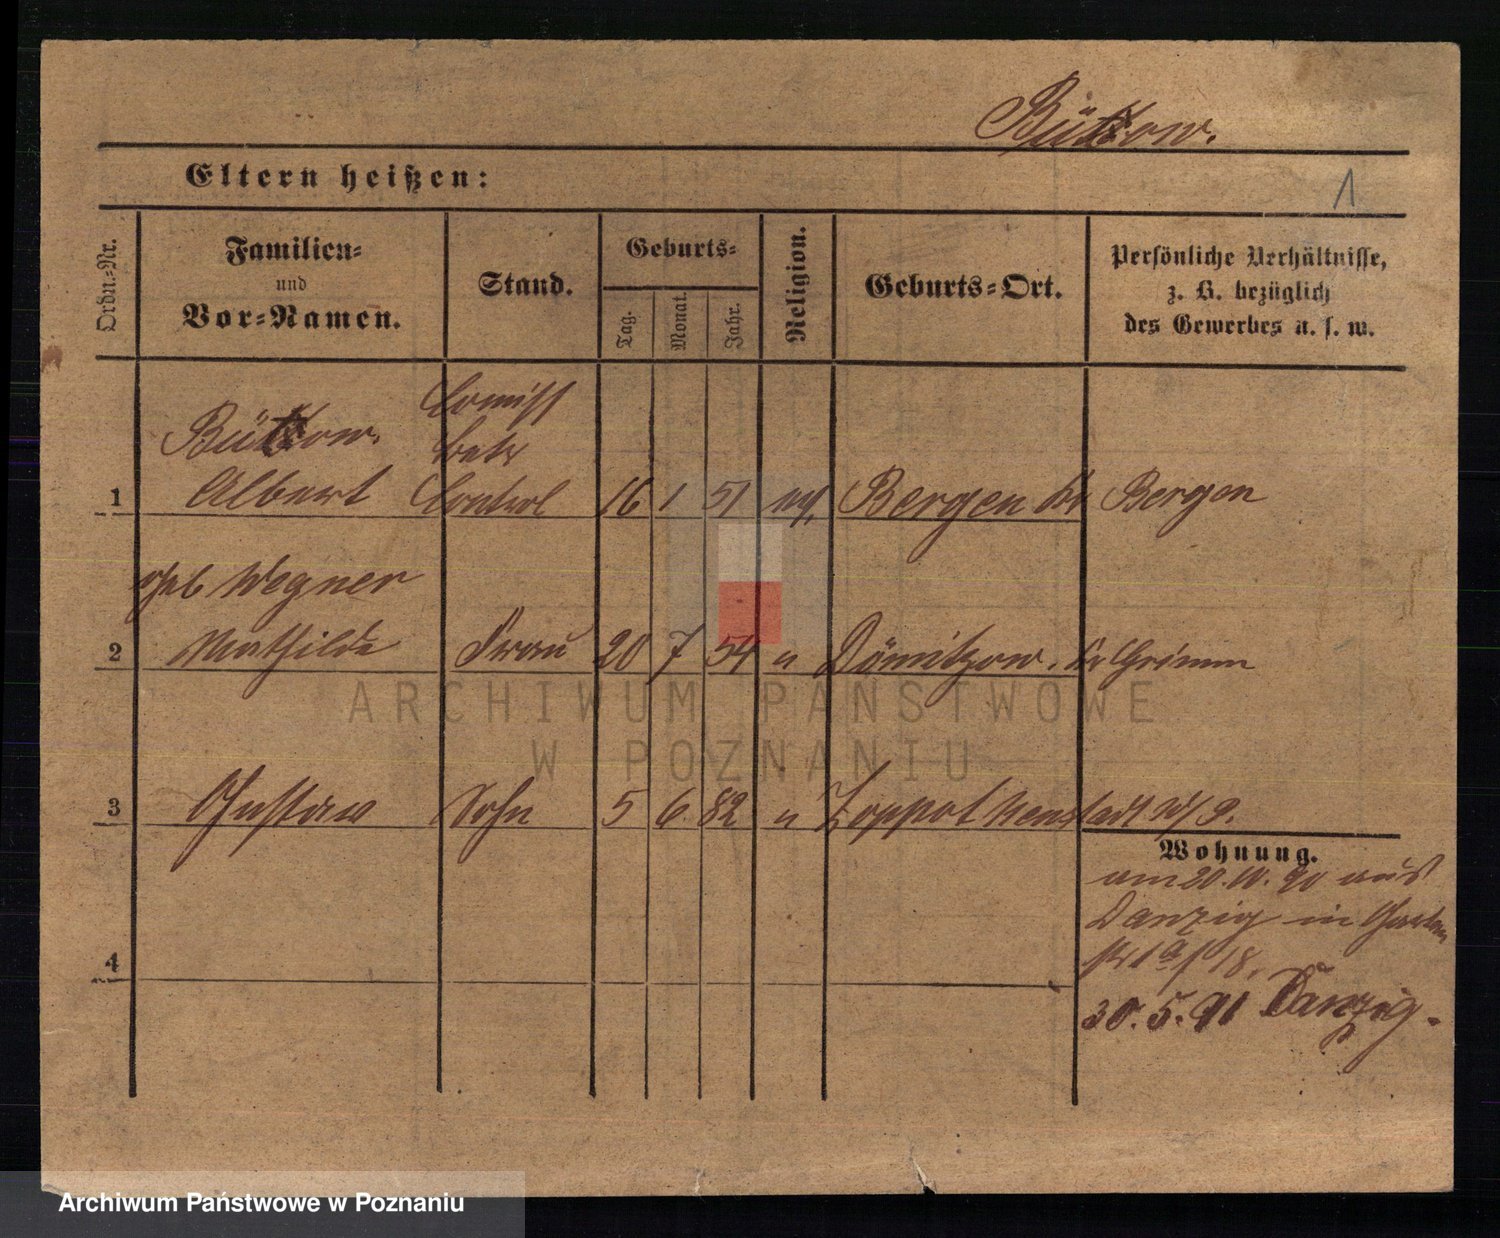 Bützow.
Eltern heißen:
1
Ordn.-Nr.
Familien-
und
Vor-Namen.
Stand.
Geburts-
Tag.
Monat.
Jahr.
Religion.
Geburts-Ort.
Persönliche Verhältnisse,
z. B. bezüglich
des Gewerbes u. s. w.
Bützow. Comiss
Betr
1 Albert Control 16 1 51 ev. Bergen Kr Bergen
geb Wegner
2 Mathilde Frau 20 7 54 " Dömitzow. Kr Grimm
3 Gustav Sohn 5 6 82 " Zoppot Neustadt W/P.
Wohnung.
am 20.10.90 aus
Danzig in Garten
18.
4
30.5.91 Danzig.
ARCHIWUM PAŃSTWOWE
W POZNANIU
Archiwum Państwowe w Poznaniu